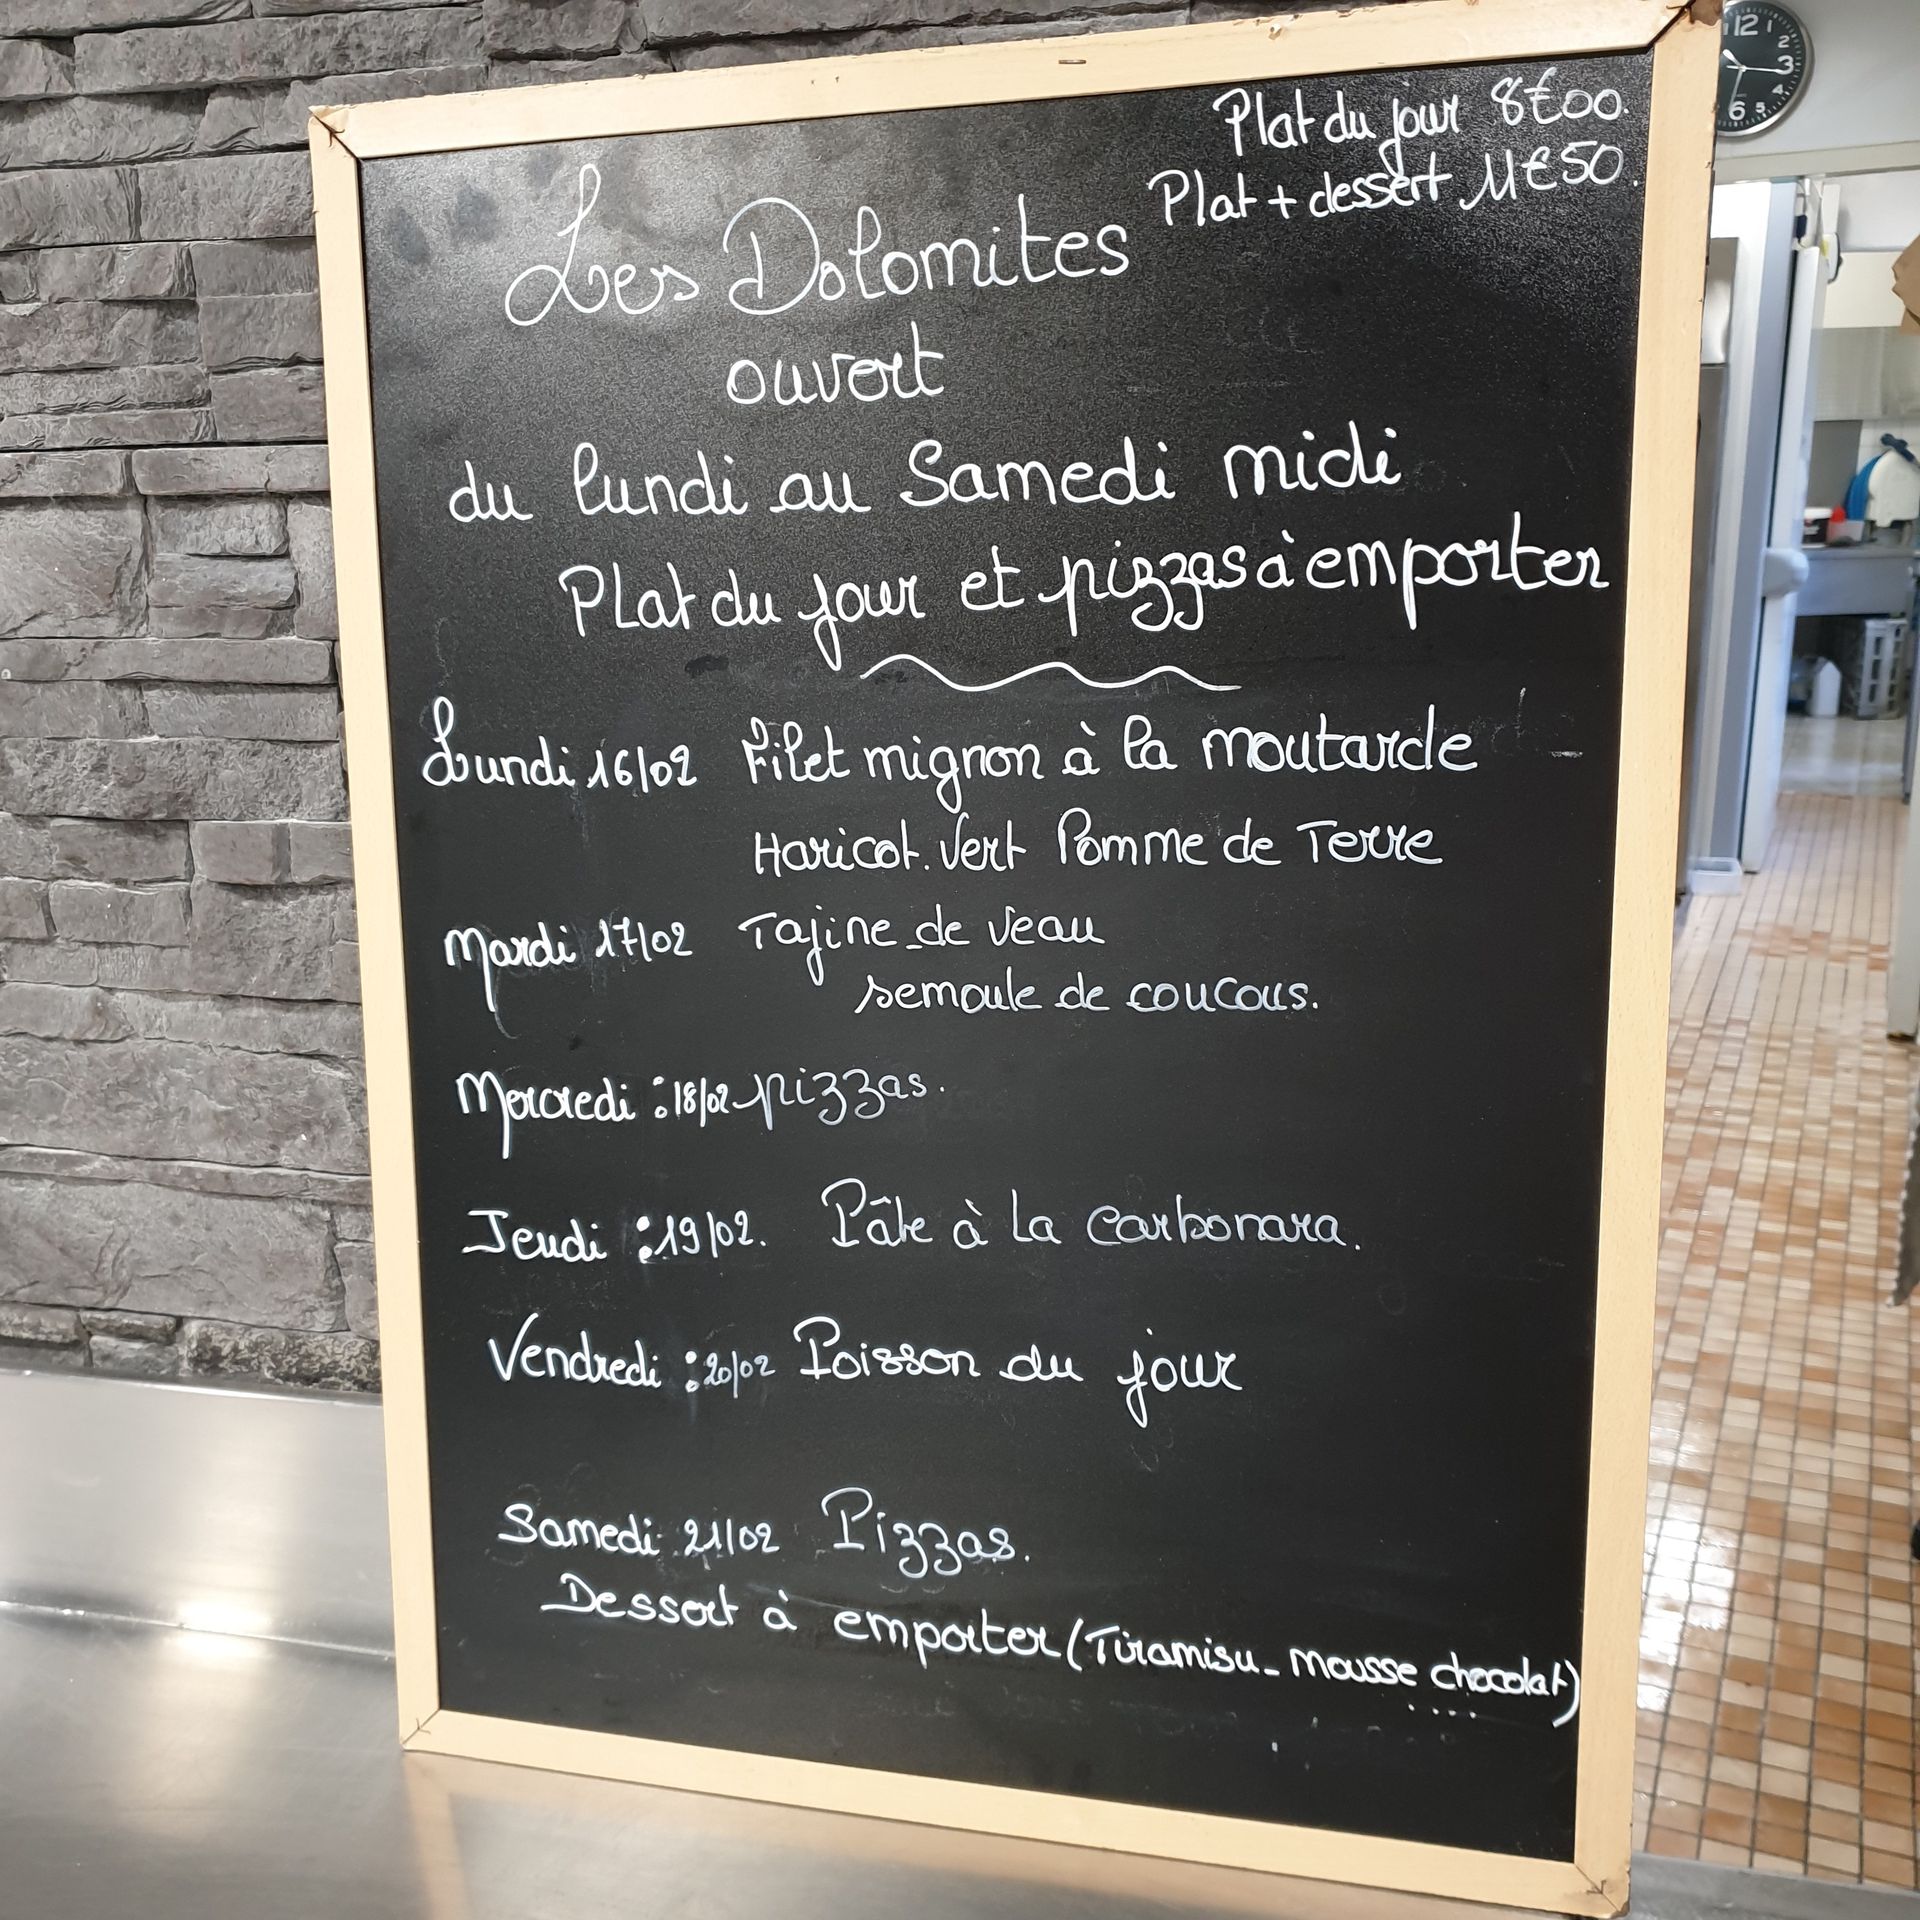 Plat du jour 8€00.
Plat + dessert 11€50.
Les Dolomites
ouvert
du lundi au Samedi midi
Plat du jour et pizzas à emporter
Lundi 16/02 Filet mignon à la moutarde
Haricot. Vert Pomme de Terre
Mardi 17/02 Tajine de veau
semoule de coucous.
Mercredi : 18/02 pizzas.
Jeudi : 19/02. Pâte à La Carbonara.
Vendredi : 20/02 Poisson du jour
Samedi 21/02 Pizzas.
Dessert à emporter (Tiramisu - mousse chocolat)
....
12 1 2 3 4 5 6